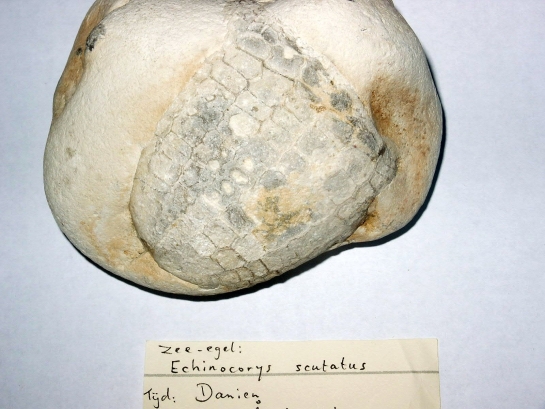 Zee-egel:
Echinocorys scutatus
Tijd: Danien